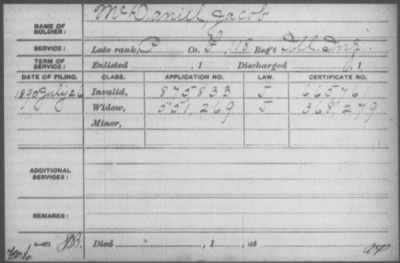 NAME OF SOLDIER: McDaniel Jacob
SERVICE: Late rank, P Co. G, 118 Reg't Ill. Inf.
TERM OF SERVICE: Enlisted , 1 Discharged , 1
DATE OF FILING. CLASS. APPLICATION NO. LAW. CERTIFICATE NO.
1890 July 26 Invalid, 875833 J 665761
Widow, 551,269 J 368,279
Minor,
ADDITIONAL SERVICES:
REMARKS:
Died , 1 , at